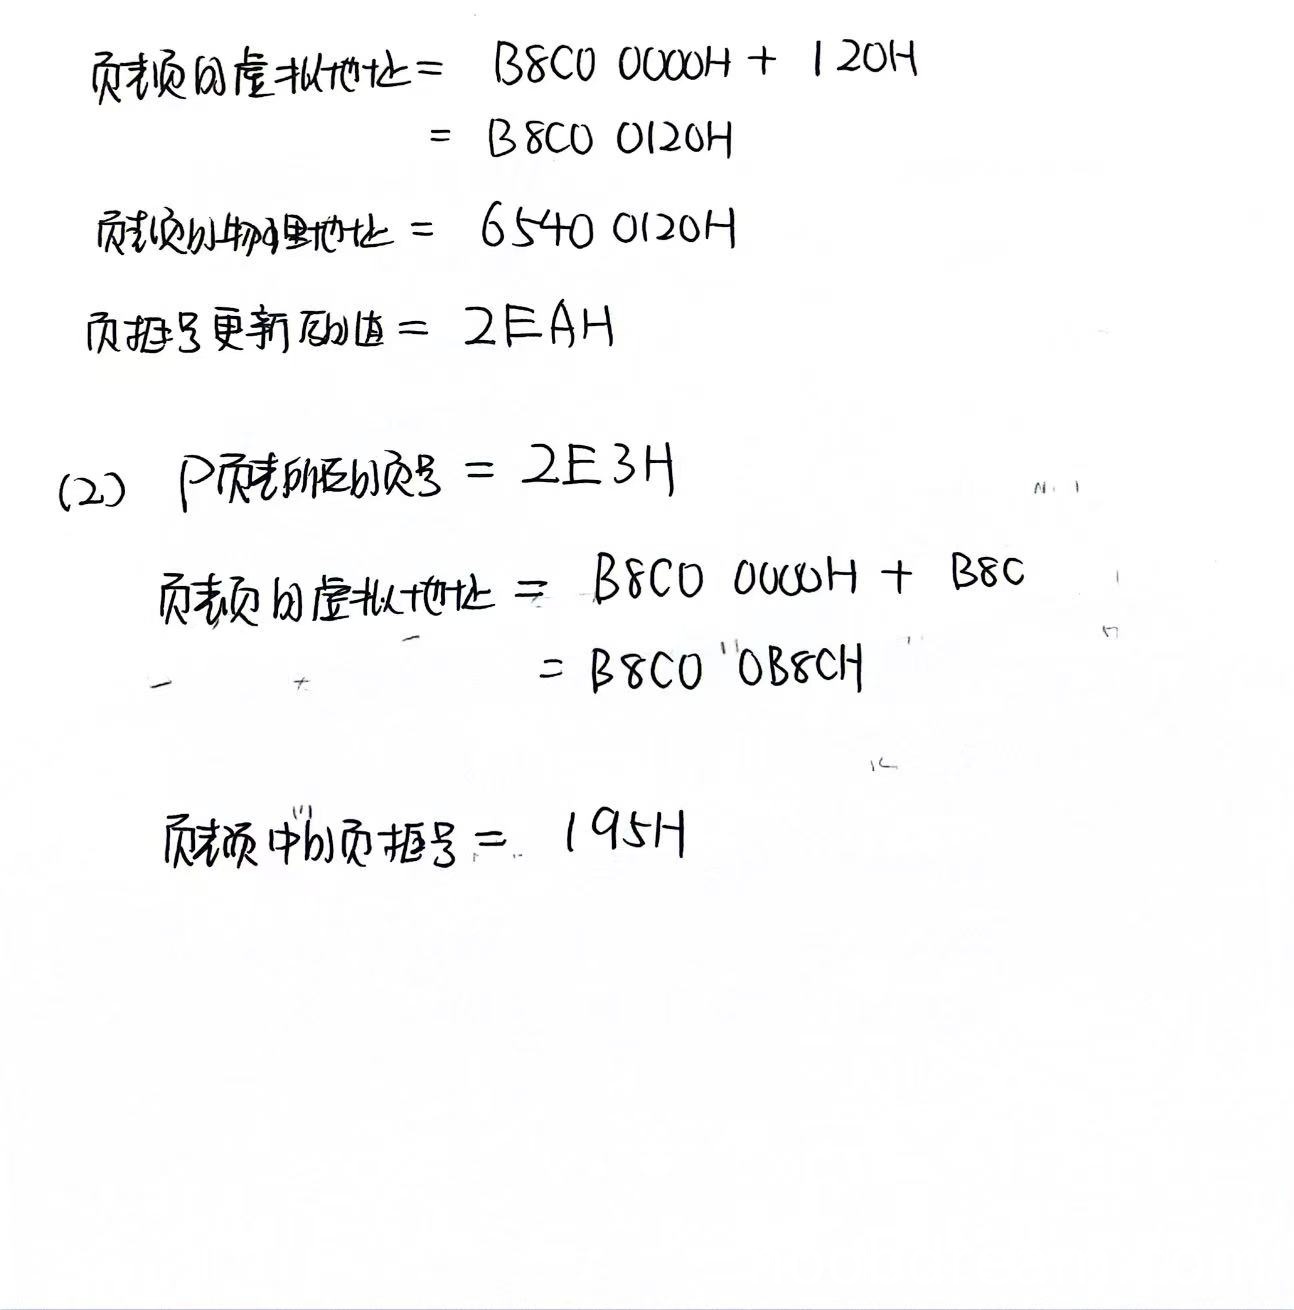 页表项的虚拟地址 = B8C0 0000H + 120H
= B8C0 0120H
页表项的物理地址 = 6540 0120H
页框号更新后的值 = 2EAH
(2) P页表所在的页号 = 2E3H
页表项的虚拟地址 = B8C0 0000H + B8C
= B8C0 0B8CH
页表项中的页框号 = 195H